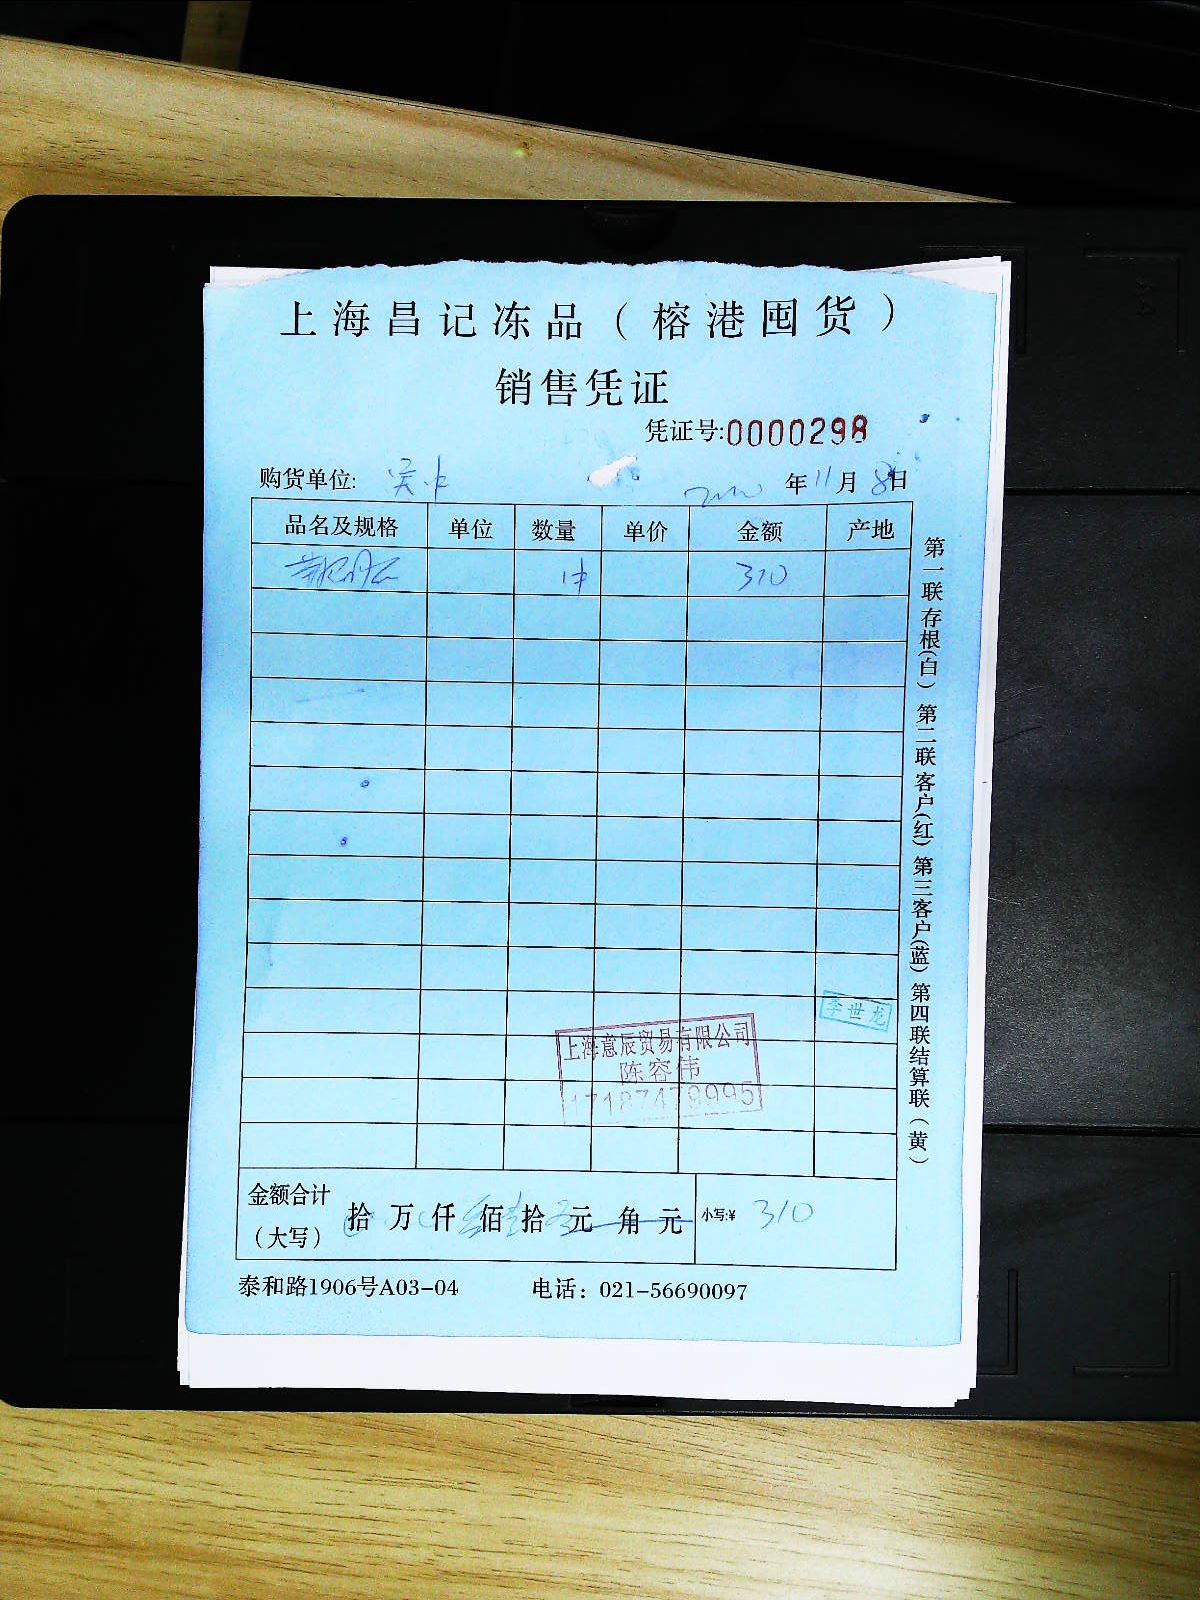 上海昌记冻品（榕港囤货）
销售凭证
凭证号:0000298
购货单位: 年11月8日
品名及规格 单位 数量 单价 金额 产地
1件 310
第一联存根(白) 第二联客户(红) 第三客户(蓝) 第四联结算联(黄)
李世龙
上海意辰贸易有限公司
陈容伟
17187479995
金额合计（大写） 拾 万 仟 佰 拾 元 角 元 小写:¥ 310
泰和路1906号A03-04 电话：021-56690097